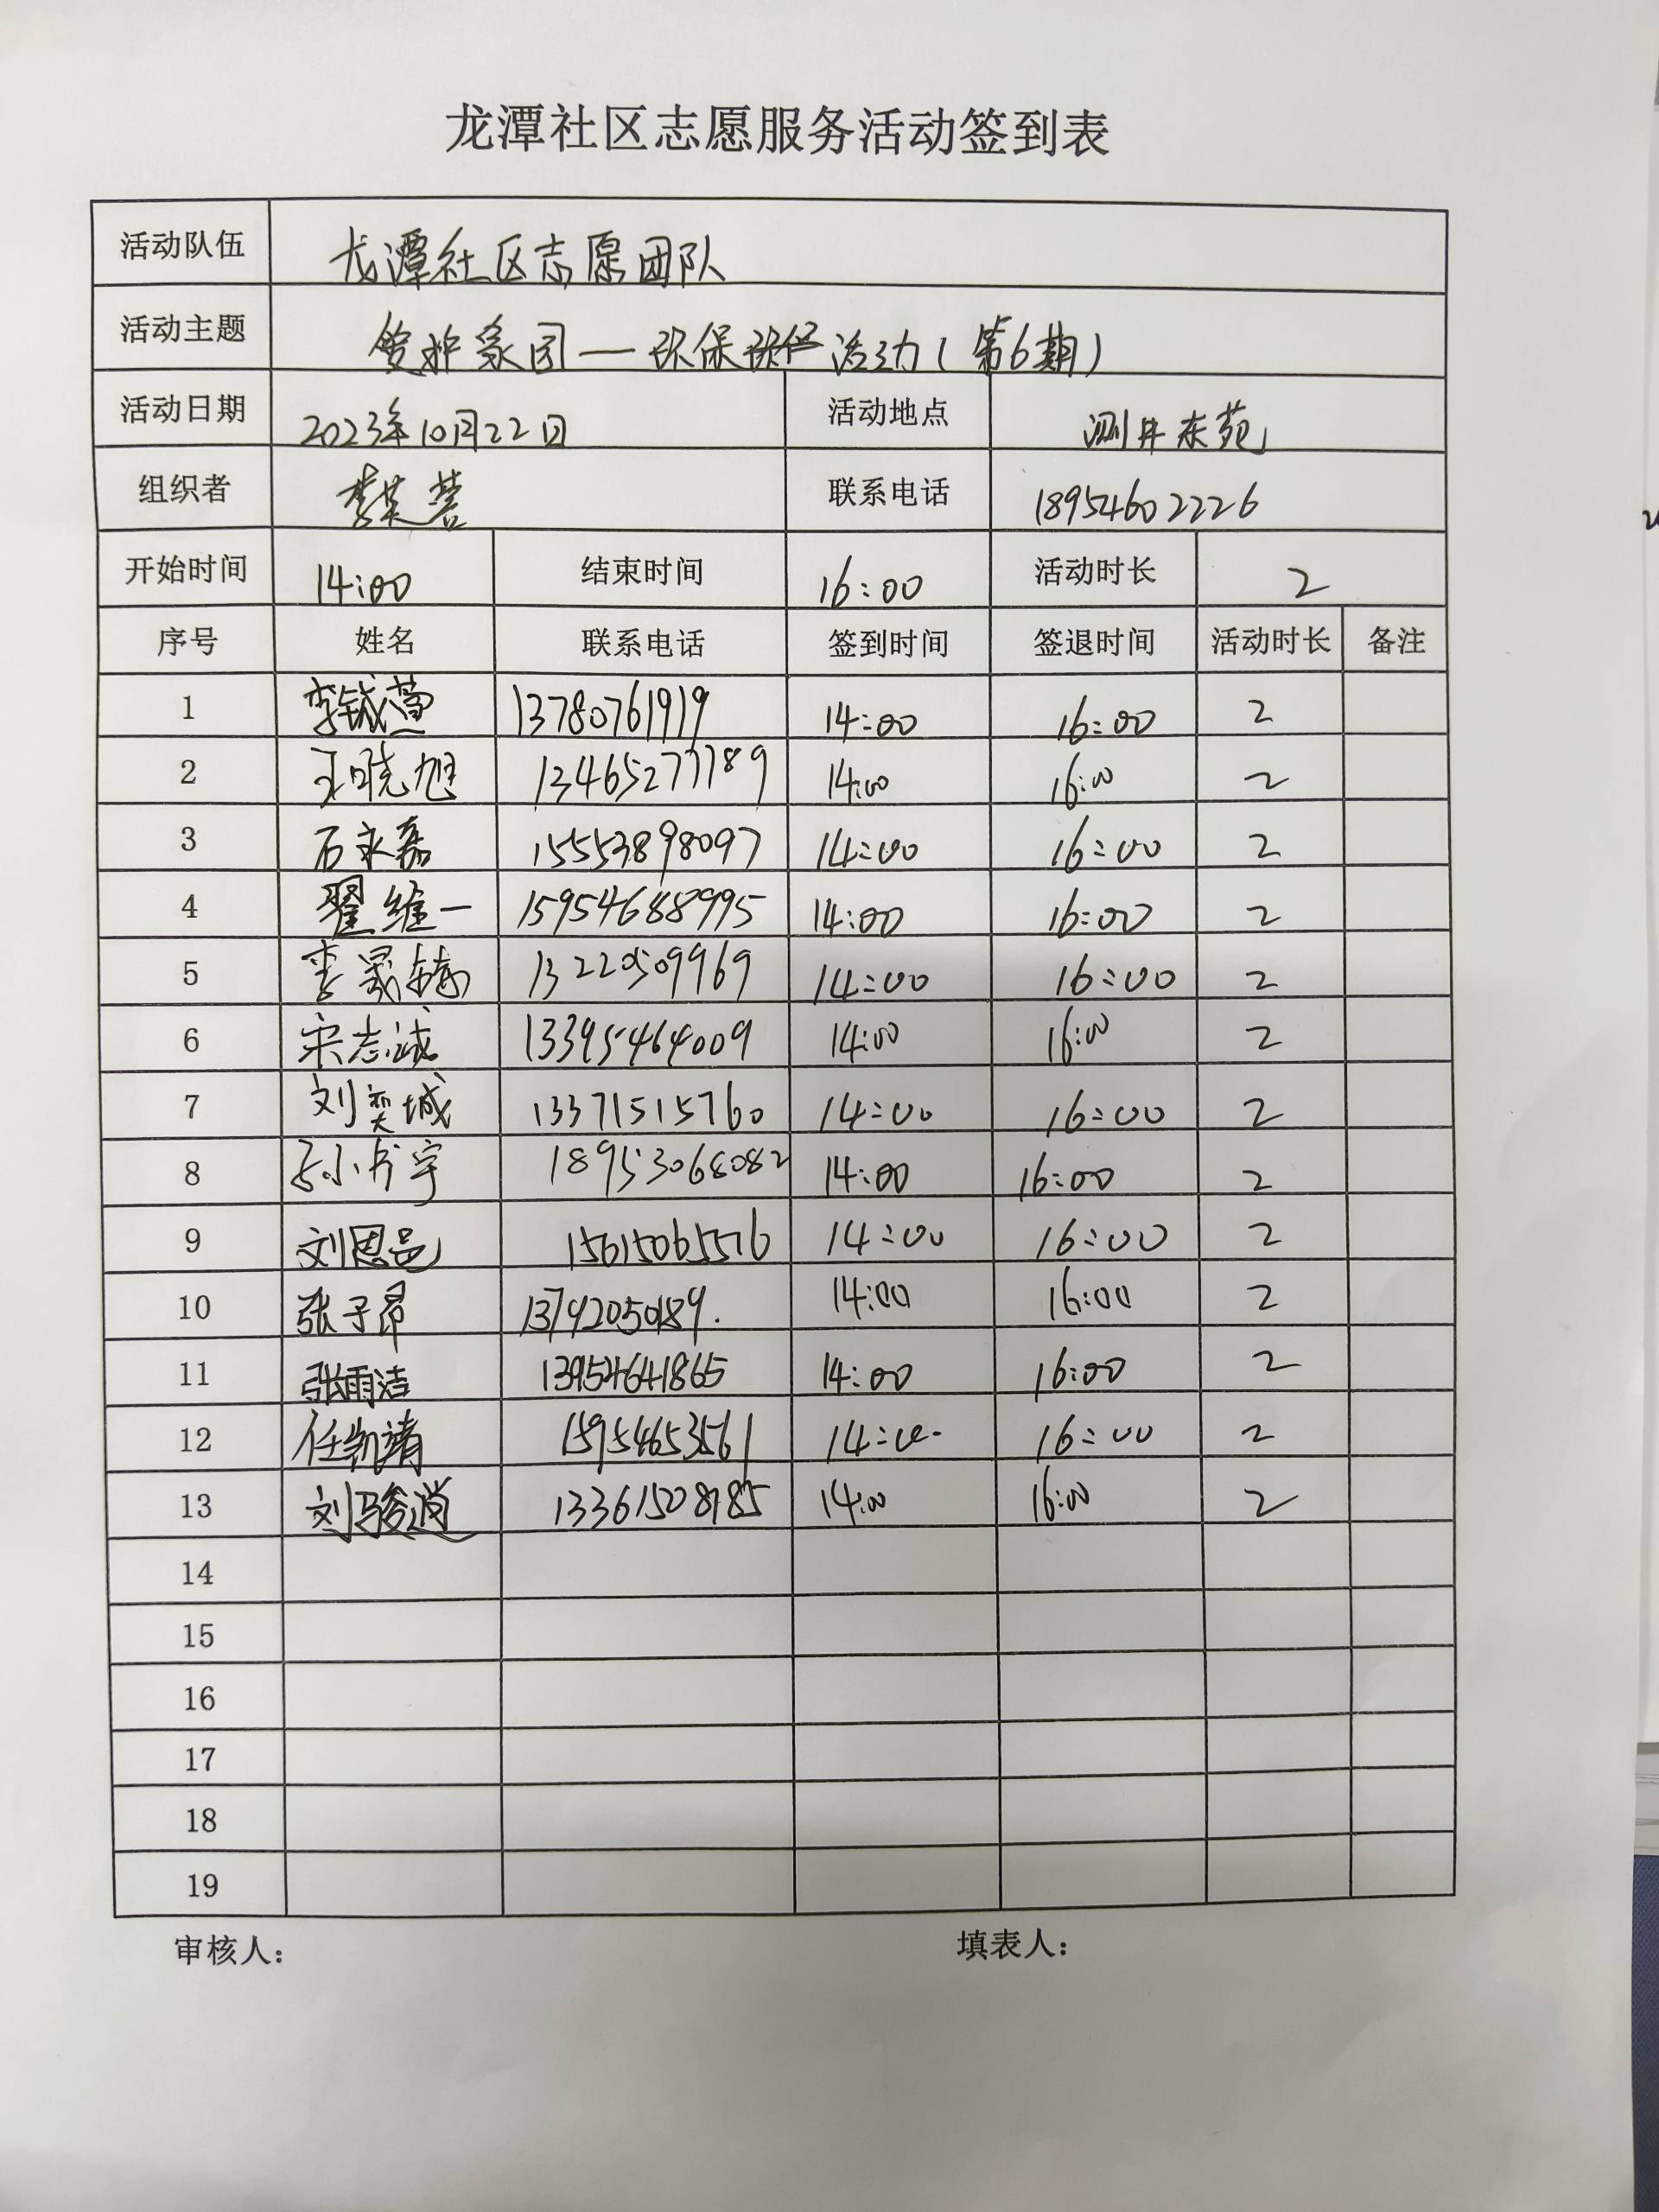 龙潭社区志愿服务活动签到表
活动队伍 龙潭社区志愿团队
活动主题 爱护家园—环保活动(第6期)
活动日期 2023年10月22日 活动地点 测井东苑
组织者 李英 联系电话 18954602226
开始时间 14:00 结束时间 16:00 活动时长 2
序号 姓名 联系电话 签到时间 签退时间 活动时长 备注
1 李铖萱 13780761919 14:00 16:00 2
2 王晓旭 13465277789 14:00 16:00 2
3 石永磊 15553898097 14:00 16:00 2
4 翟维一 15954688995 14:00 16:00 2
5 李晟 13220509969 14:00 16:00 2
6 宋志诚 13395464009 14:00 16:00 2
7 刘奕城 13371515760 14:00 16:00 2
8 孙书宇 18953068082 14:00 16:00 2
9 刘恩邑 15615065576 14:00 16:00 2
10 张子昂 13792050189. 14:00 16:00 2
11 张雨洁 13954641865 14:00 16:00 2
12 任凯靖 15954653561 14:00 16:00 2
13 刘骏逍 13361508785 14:00 16:00 2
14
15
16
17
18
19
审核人： 填表人：